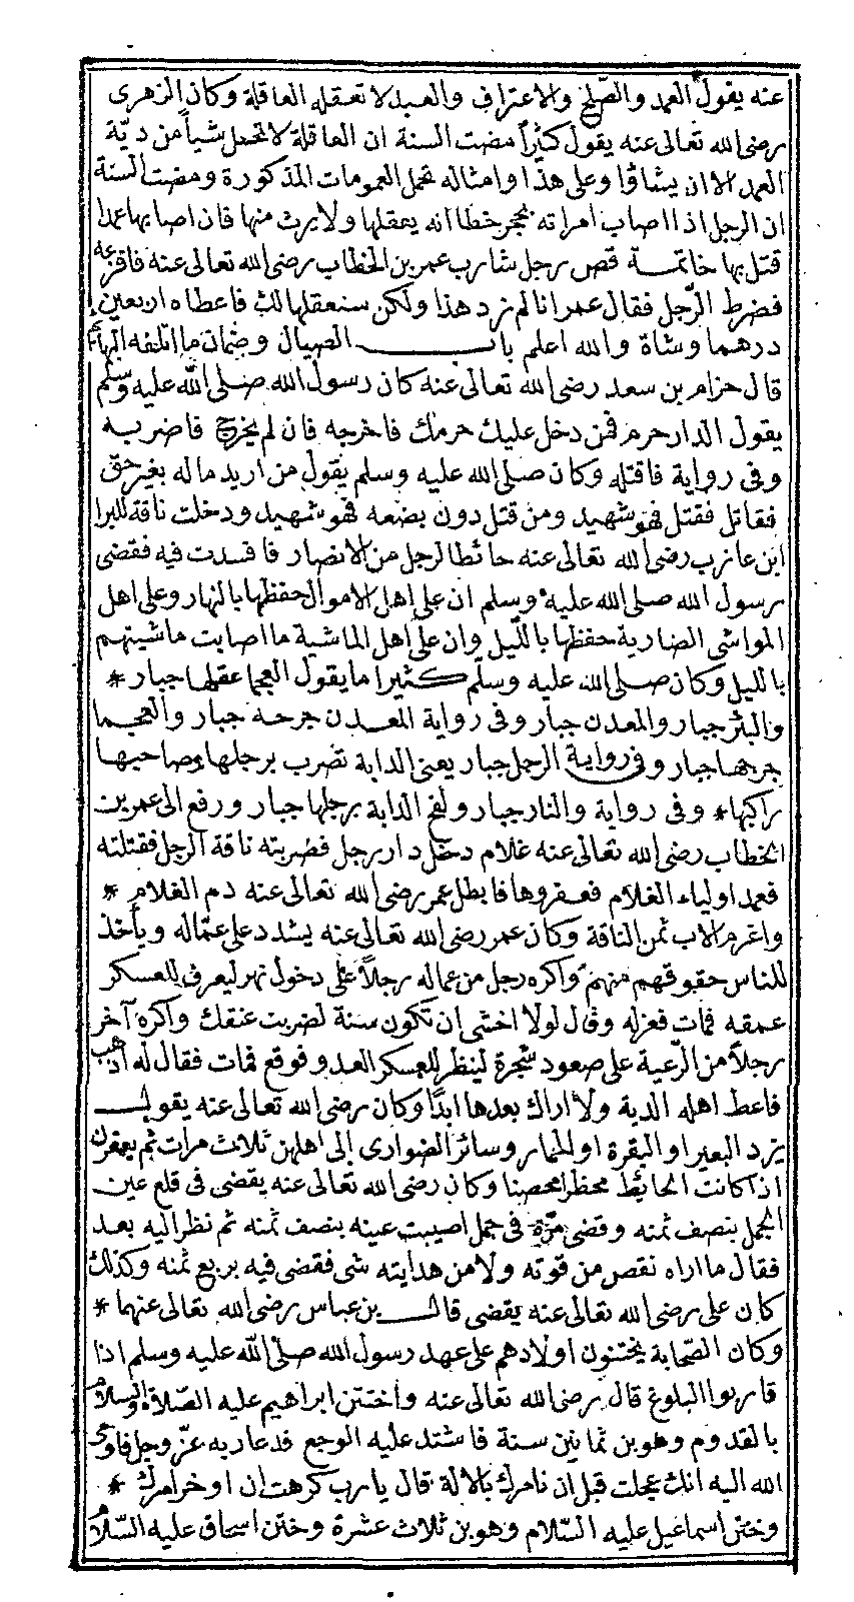 عنه يقول العمد والصلح والاعتراف والعبد لا تعقله العاقلة وكان الزهرى
رضى الله تعالى عنه يقول كثيرا مضت السنة ان العاقلة لا تحمل شيأ من دية
العمد الا ان يشاؤا وعلى هذا وامثاله تحمل العمومات المذكورة ومضت السنة
ان الرجل اذا اصاب امراته بجرح خطا انه يعقلها ولا يرث منها فان اصابها عمدا
قتل بها خاتمــة قص رجل شارب عمر بن الخطاب رضى الله تعالى عنه فافزعه
فضرط الرّجل فقال عمر انا لم نرد هذا ولكن سنعقلها لك فاعطاه اربعين
درهما وشاة والله اعلم بابــــ الصيال وضمان ما اتلفه البهائم
قال حزام بن سعد رضى الله تعالى عنه كان رسول الله صلى الله عليه وسلم
يقول الدار حرم فمن دخل عليك حرمك فاخرجه فان لم يخرج فاضربه
وفى رواية فاقتله وكان صلى الله عليه وسلم يقول من اريد ماله بغير حق
فقاتل فقتل فهو شهيد ومن قتل دون بضعه فهو شهيد ودخلت ناقة للبرا
ابن عازب رضى الله تعالى عنه حائطا لرجل من الانصار فافسدت فيه فقضى
رسول الله صلى الله عليه وسلم ان على اهل الاموال حفظها بالنهار وعلى اهل
المواشى الضارية حفظها بالليل وان على اهل الماشية ما اصابت ماشيتهم
بالليل وكان صلى الله عليه وسلم كثيرا ما يقول العجما عقلها جبار *
والبئر جبار والمعدن جبار وفى رواية المعدن جرحه جبار والعجما
جرحها جبار وفى رواية الرجل جبار يعنى الدابة تضرب برجلها وصاحبها
راكبها * وفى رواية والنار جبار ولفح الدابة برجلها جبار ورفع الى عمر بن
الخطاب رضى الله تعالى عنه غلام دخل دار رجل فضربته ناقة الرجل فقتلته
فعمد اولياء الغلام فعقروها فابطل عمر رضى الله تعالى عنه دم الغلام *
واغرم الاب ثمن الناقة وكان عمر رضى الله تعالى عنه يشدد على عمّاله ويأخذ
للناس حقوقهم منهم واكره رجل من عماله رجلاً على دخول نهر ليعرف للعسكر
عمقه فمات فعزله وقال لولا اخشى ان تكون سنة لضربت عنقك واكره آخر
رجلاً من الرّعية على صعود شجرة لينظر للعسكر العدو فوقع فمات فقال له اذهب
فاعط اهله الدية ولا اراك بعدها ابدًا وكان رضى الله تعالى عنه يقولــــ
يرد البعير او البقرة او الحمار وسائر الضوارى الى اهلهن ثلاث مرات ثم يعقرن
اذا كانت الحائط محظرا محصنا وكان رضى الله تعالى عنه يقضى فى قلع عين
الجمل بنصف ثمنه وقضى مرّة فى جمل اصيبت عينه بنصف ثمنه ثم نظر اليه بعد
فقال ما اراه نقص من قوته ولا من هدايته شى فقضى فيه بربع ثمنه وكذلك
كان على رضى الله تعالى عنه يقضى قالــــ بن عباس رضى الله تعالى عنهما *
وكان الصّحابة يختنون اولادهم على عهد رسول الله صلى الله عليه وسلم اذا
قاربوا البلوغ قال رضى الله تعالى عنه واختتن ابراهيم عليه الصّلاة والسلام
بالقدوم وهو بن ثمانين سنة فاشتد عليه الوجع فدعا ربه عزّ وجل فاوحى
الله اليه انك عجلت قبل ان نامرك بالالة قال يا رب كرهت ان اوخر امرك *
وختن اسماعيل عليه السّلام وهو بن ثلاث عشرة وختن اسحاق عليه السّلام